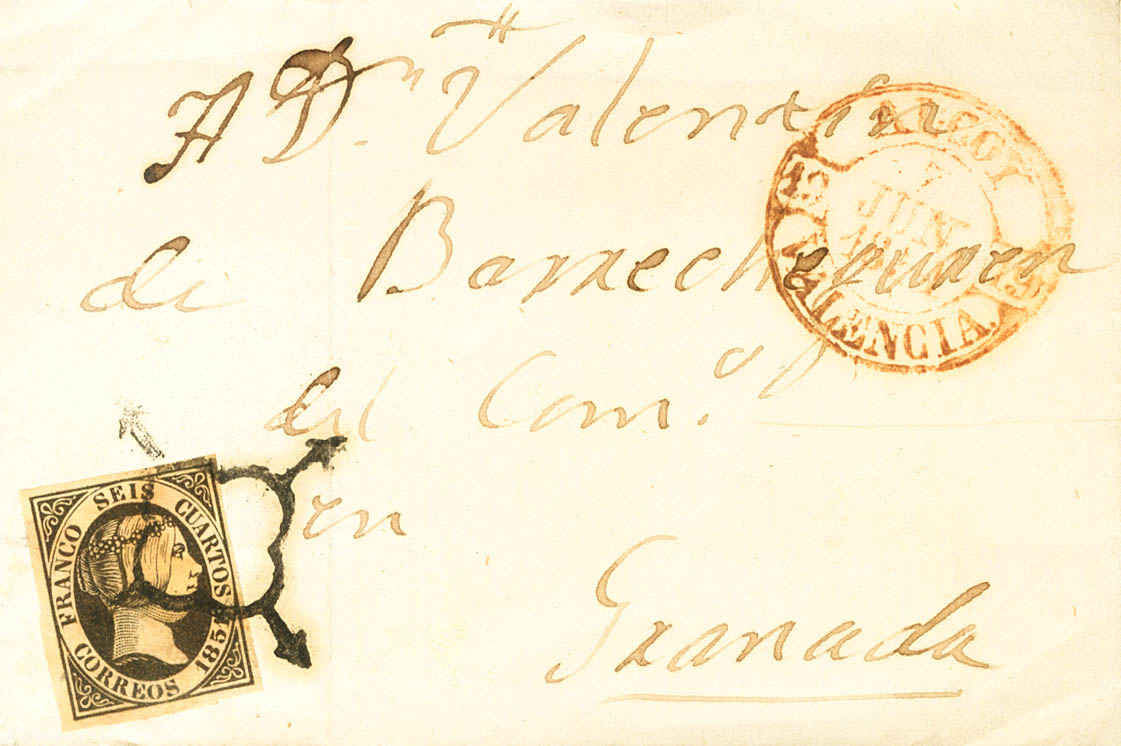 A Dn. Valentin
de Barrecheguren
del Com.o
en
Granada
ALCOY
7
JUN
VALENCIA.
13
FRANCO SEIS CUARTOS
CORREOS 1851